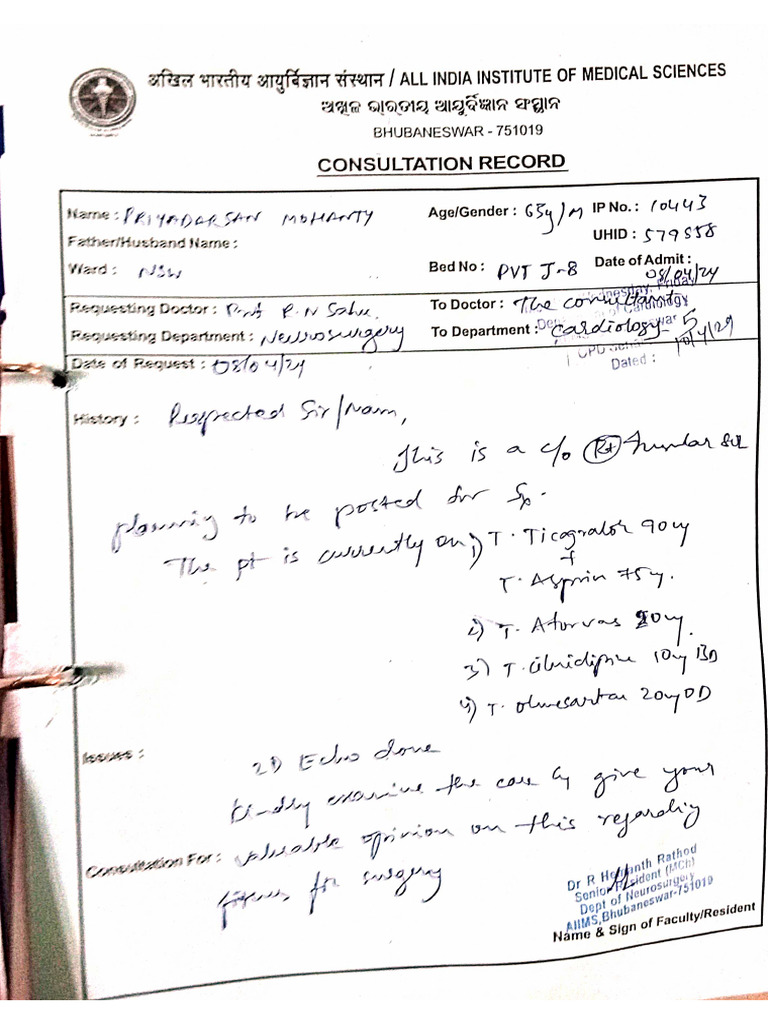 अखिल भारतीय आयुर्विज्ञान संस्थान / ALL INDIA INSTITUTE OF MEDICAL SCIENCES
ଅଖିଳ ଭାରତୀୟ ଆୟୁର୍ବିଜ୍ଞାନ ସଂସ୍ଥାନ
BHUBANESWAR - 751019
CONSULTATION RECORD
Name : PRIYADARSAN MOHANTY Age/Gender : 65y/M IP No. : 10443
Father/Husband Name : UHID : 579858
Ward : NSW Bed No : PVT J-8 Date of Admit : 08/04/24
Requesting Doctor : Prof R.N Sahu. To Doctor : The consultant
Requesting Department : Neurosurgery To Department : Cardiology
Date of Request : 08/04/24 Dated :
History : Respected Sir/Mam,
This is a c/o Rt
planning to be posted for Sx.
The pt is currently on 1) T. Ticagralor 90mg
+
T. Asprin 75mg.
2) T. Atorvas 20mg.
3) T. Cilnidipine 10mg BD
4) T. Olmesartan 20mg OD
Issues : 2D Echo done
kindly examine the case & give your
Consultation For : valuable opinion on this regarding
fitness for surgery
Dr R Hemanth Rathod
Senior Resident (MCh)
Dept of Neurosurgery
AIIMS, Bhubaneswar-751019
Name & Sign of Faculty/Resident